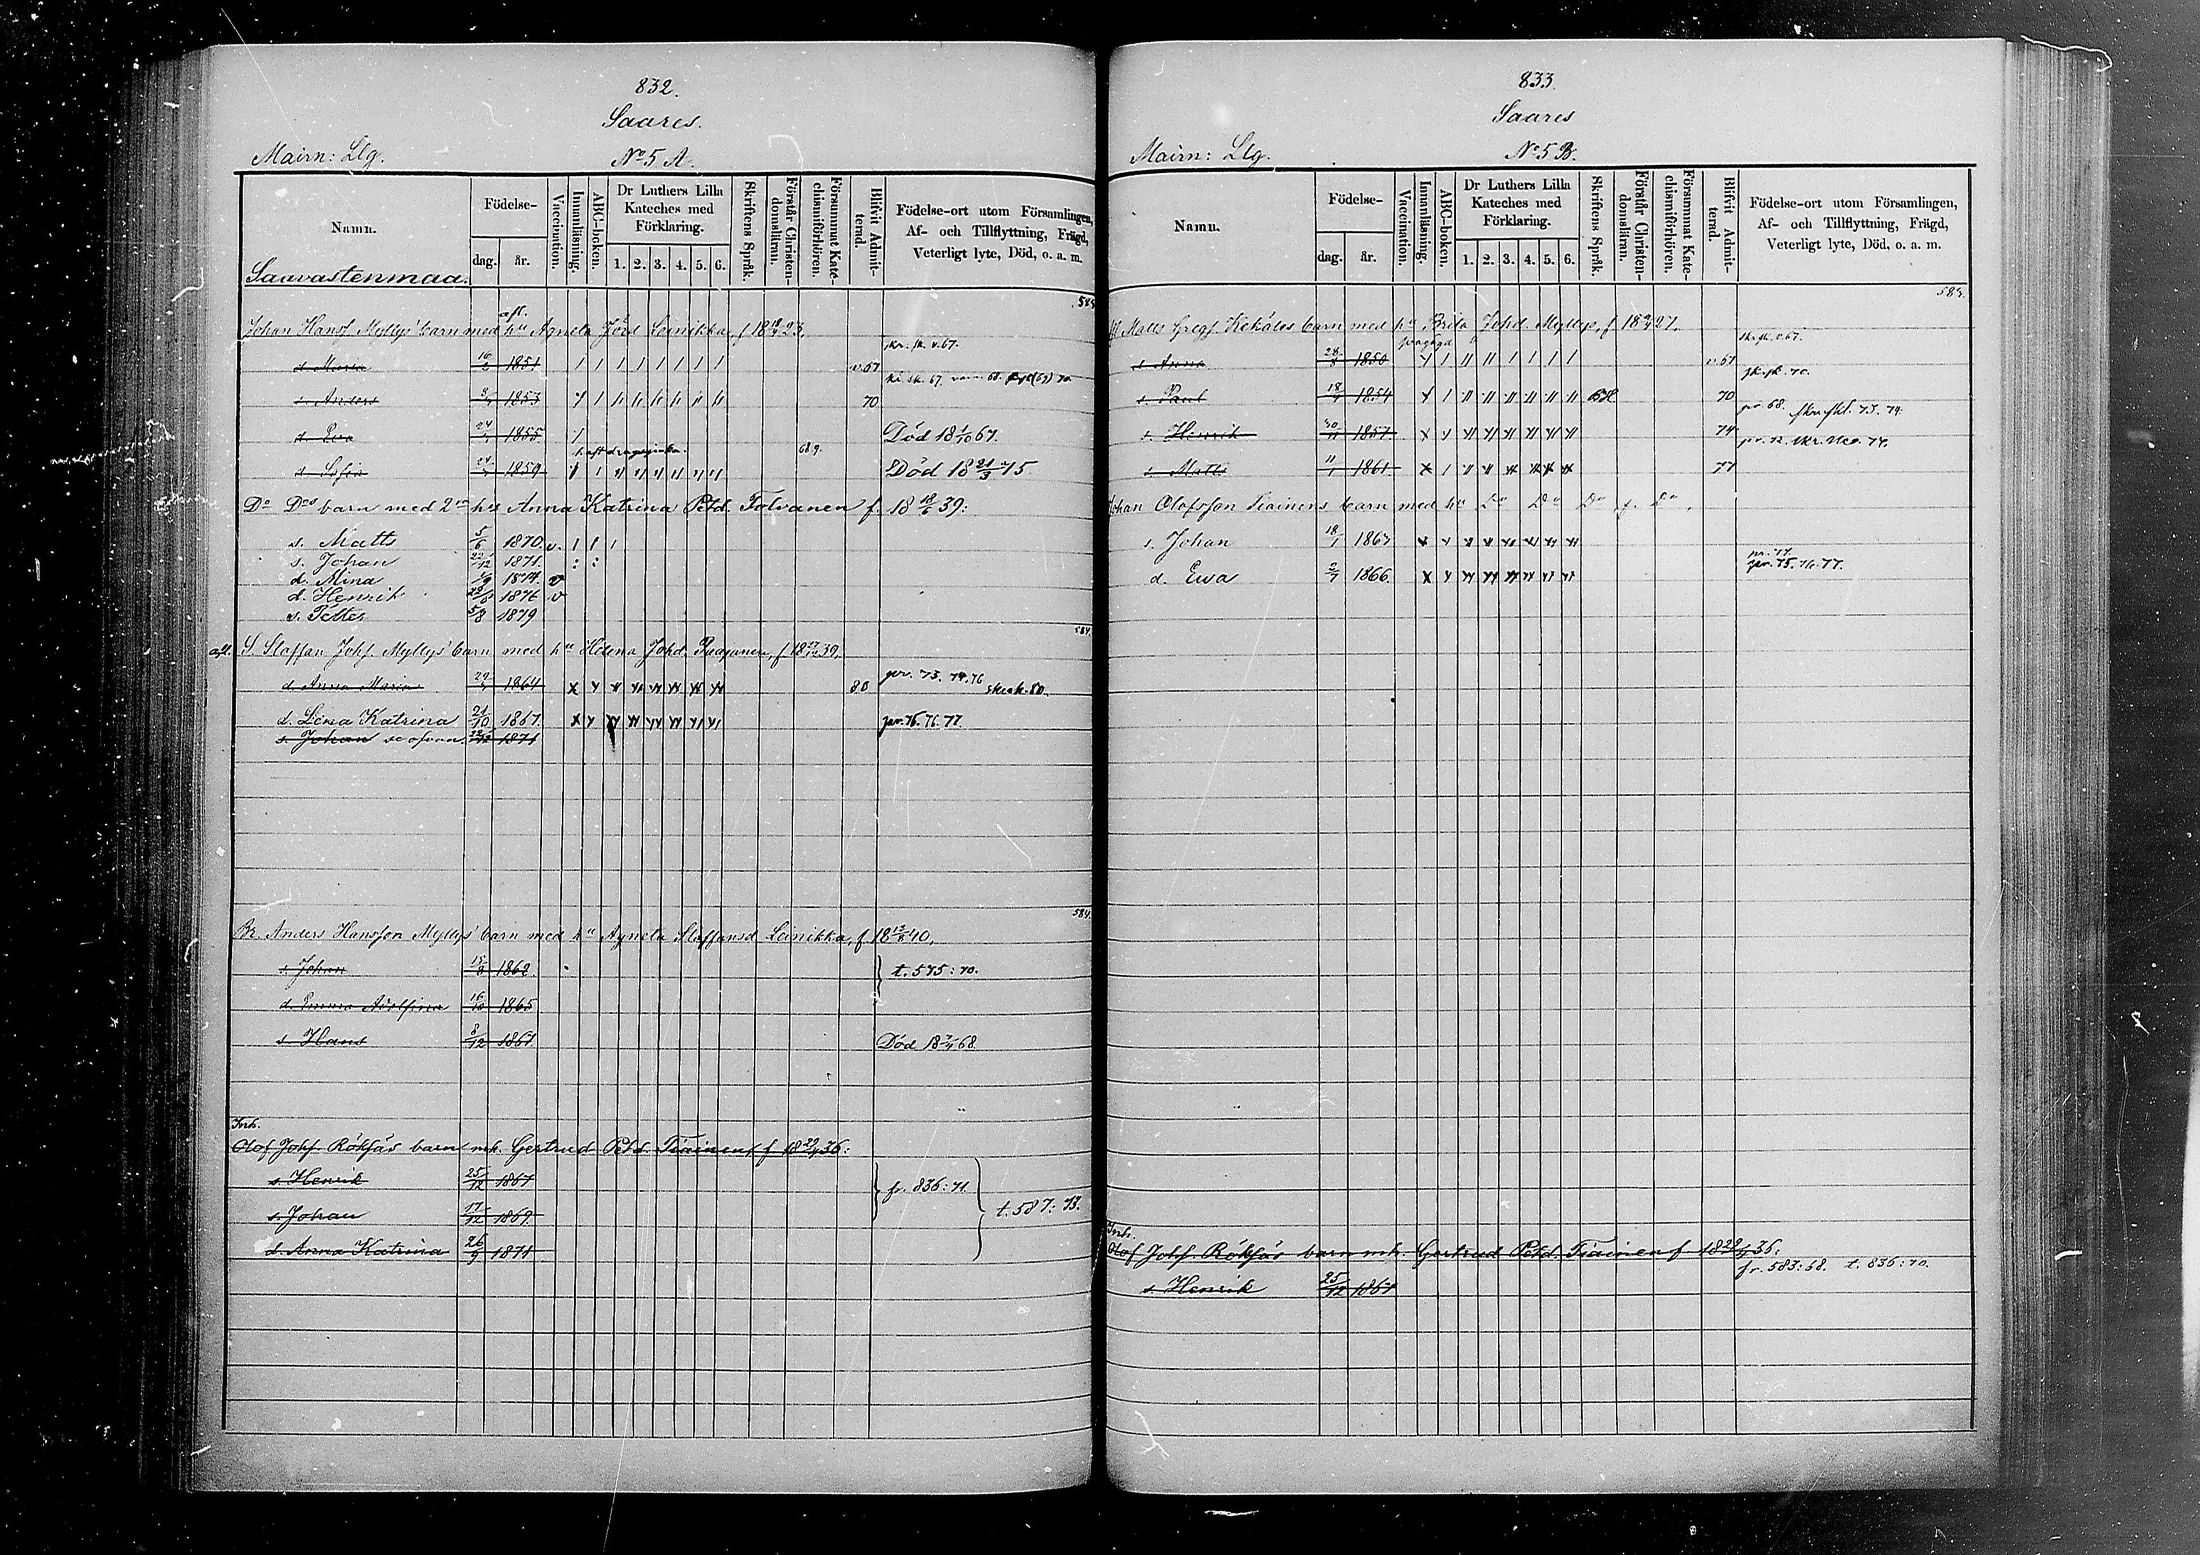 832.
Saares.
Mairn: Llg. No 5 A.
Namn. Födelse- dag. år. Vaccination. Innanläsning. ABC-boken. Dr Luthers Lilla Kateches med Förklaring. 1. 2. 3. 4. 5. 6. Skriftens Språk. Förstår Christen-domsläran. Försummat Kate-chismiförhören. Blifvit Admit-terad. Födelse-ort utom Församlingen, Af- och Tillflyttning, Frägd, Veterligt lyte, Död, o. a. m.
Sauvastenmaa.
583
afl.
Johan Hanss. Myllys' barn med hu Agneta Leinikka, f. 23,
d. Maria 1851 v. 67
s. Anders 1853 70
d. Eva 24 1855 Död 18 1/10 67.
d. Sofia 1859 68 9. Död 18 21/3 75
Do Dos barn med 2ra hu Anna Katrina Petd. Tolvanen f. 18 18/6 39:
s. Matts 5/6 1870. v.
s. Johan 22/12 1871.
d. Mina 1874. v
d. Henrik 1876 v
s. Petter 5/8 1879
584.
afl. S. Staffan Johs. Myllys' barn med hu Helena Johd. Paajanen, f. 39,
d. Anna Maria 1864 80 73. 74. 76 80.
d. Lena Katrina 21/10 1867. 75. 76. 77.
s. Johan se ofvan. 22/12 1871
584.
Br. Anders Hansson Myllys' barn med hu Agneta Staffansd. Leinikka, f. 40,
s. Johan 1862 t. 575: 70.
d. Emma Adolfina 16/10 1865
s. Hans 8/12 1867. Död 18 7/4 68.
Inh.
Olof Johs. Röksäs barn mh. Gertrud Petd. Tiainen, f. 36:
s. Henrik 25/12 1867 fr. 836: 71
s. Johan 17/12 1869. t. 587: 73.
d. Anna Katrina 26/9 1871
833.
Saares
Mairn: Llg. No 5 B.
Namn. Födelse- dag. år. Vaccination. Innanläsning. ABC-boken. Dr Luthers Lilla Kateches med Förklaring. 1. 2. 3. 4. 5. 6. Skriftens Språk. Förstår Christen-domsläran. Försummat Kate-chismiförhören. Blifvit Admit-terad. Födelse-ort utom Församlingen, Af- och Tillflyttning, Frägd, Veterligt lyte, Död, o. a. m.
583.
Matts Gregs. Kekäles barn med hu Brita Johd. Myllys, f. 27,
d. Anna 1850 v. 67
s. Paul 1854 70
s. Henrik 30/11 1857 74
s. Matts 11/1 1861 77
Johan Olofsson Tiainens barn med hu Do Do Do f. Do.
s. Johan 18/1 1863
d. Ewa 2/7 1866. 75. 76. 77.
Inh.
Olof Johs. Röksäs barn mh. Gertrud Petd. Tiainen f. 36:
fr. 583: 68. t. 836: 70.
s. Henrik 25/12 1867